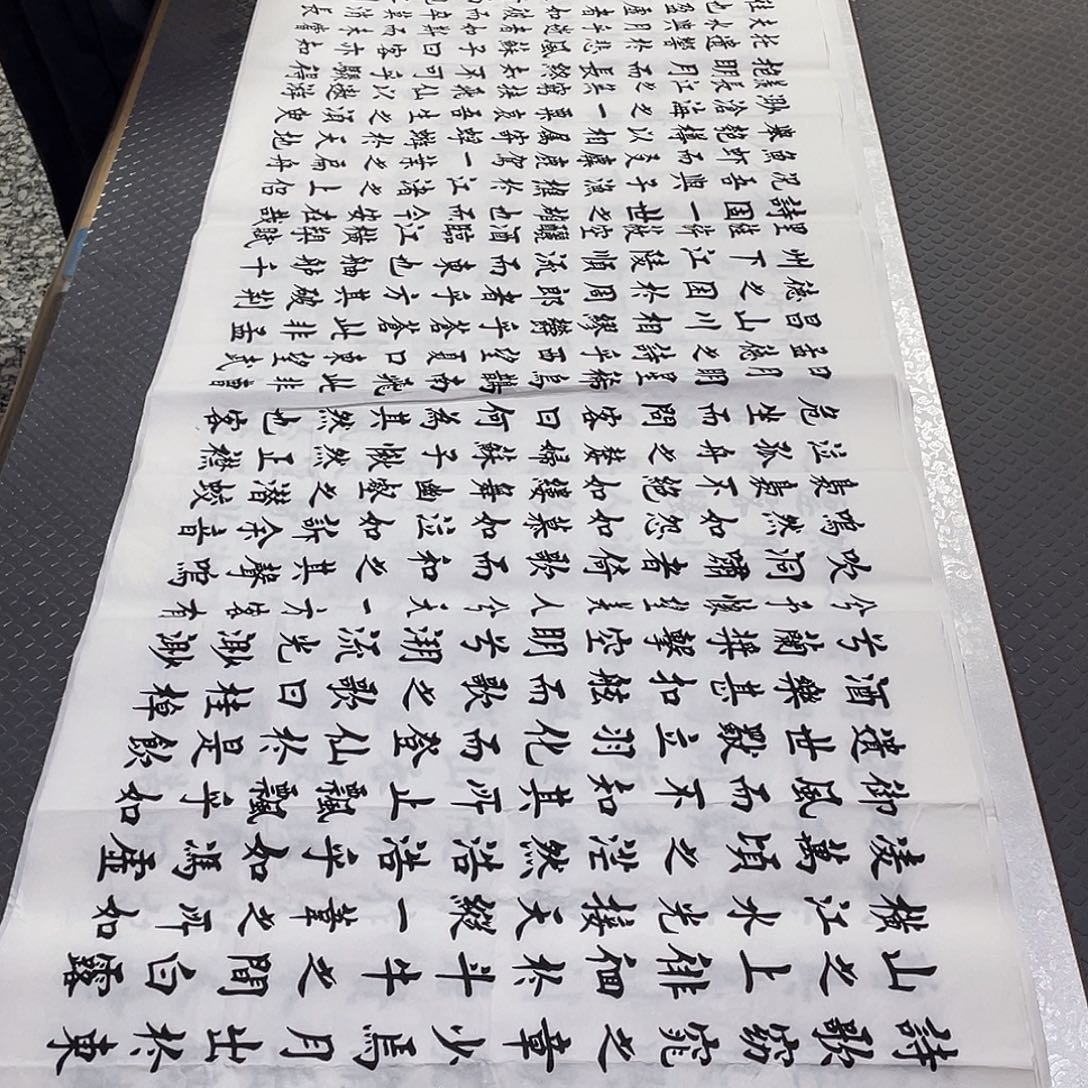 詩歌窈窕之章少焉月出於東
山之上徘徊於斗牛之間白露
橫江水光接天縱一葦之所如
凌萬頃之茫然浩浩乎如馮虛
御風而不知其所止飄飄乎如
遺世獨立羽化而登仙於是飲
酒樂甚扣舷而歌之歌曰桂棹
兮蘭槳擊空明兮溯流光渺渺
兮予懷望美人兮天一方客有
吹洞簫者倚歌而和之其聲嗚
嗚然如怨如慕如泣如訴余音
裊裊不絕如縷舞幽壑之潛蛟
泣孤舟之嫠婦蘇子愀然正襟
危坐而問客曰何為其然也客
曰月明星稀烏鵲南飛此非曹
孟德之詩乎西望夏口東望武
昌山川相繆鬱乎蒼蒼此非孟
德之困於周郎者乎方其破荊
州下江陵順流而東也舳艫千
里旌旗蔽空釃酒臨江橫槊賦
詩固一世之雄也而今安在哉
況吾與子漁樵於江渚之上侶
魚蝦而友麋鹿駕一葉之扁舟
舉匏樽以相屬寄蜉蝣於天地
渺滄海之一粟哀吾生之須臾
羨長江之無窮挾飛仙以遨遊
抱明月而長終知不可乎驟得
托遺響於悲風蘇子曰客亦知
夫水與月乎逝者如斯而未嘗
往也盈虛者如彼而卒莫消長